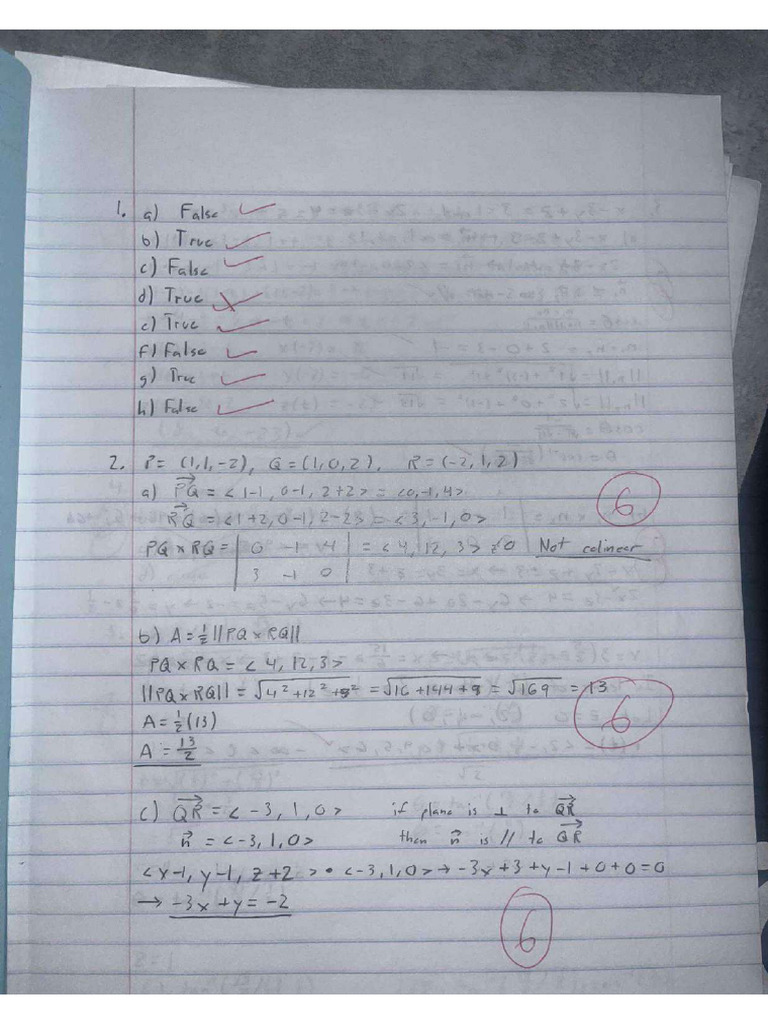 1. a) False ✓
b) True ✓
c) False ✓
d) True ✗
e) True ✓
f) False ✓
g) True ✓
h) False ✓
2. P = (1,1,-2), Q = (1,0,2), R = (-2,1,2)
a) PQ = <1-1, 0-1, 2+2> = <0,-1,4>
6
RQ = <1+2, 0-1, 2-2> = <3,-1,0>
PQ × RQ = | 0 -1 4 | = <4,12,3> ≠ 0 Not colinear
| 3 -1 0 |
b) A = ½ ||PQ × RQ||
PQ × RQ = <4,12,3>
||PQ × RQ|| = √4²+12²+3² = √16+144+9 = √169 = 13
6
A = ½(13)
A = 13/2
c) QR = <-3, 1, 0> if plane is ⊥ to QR
n = <-3, 1, 0> then n is // to QR
<x-1, y-1, z+2> • <-3,1,0> → -3x+3+y-1+0+0=0
→ -3x+y=-2
6